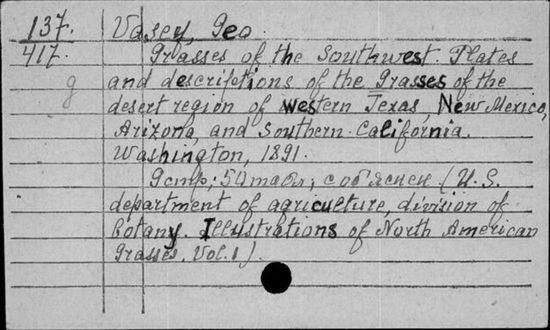 137.
417.
g
Vasey, Geo.
Grasses of the Southwest. Plates
and descriptions of the grasses of the
desert region of western Texas, New Mexico,
Arizona, and Southern California.
Washington, 1891.
9 стр; 50 табл;       (U.S.
department of agriculture, division of
botany. Illustrations of North American
Grasses. Vol. 1).